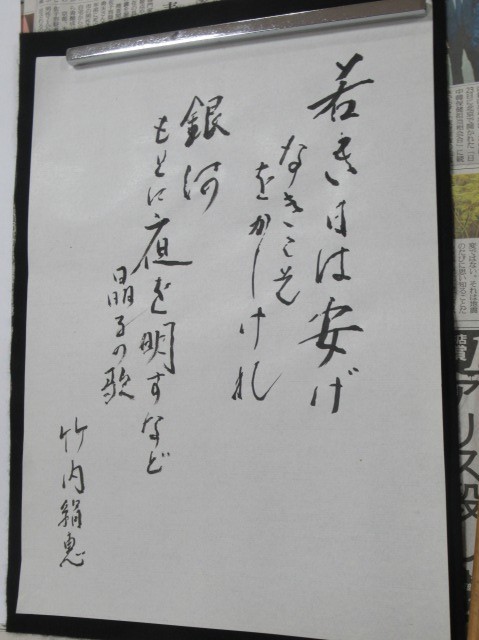 若き日は安げ
なきこそ
をかしけれ
銀河
もとに夜を明すなど
晶子の歌
竹内絹恵
アリス殺し